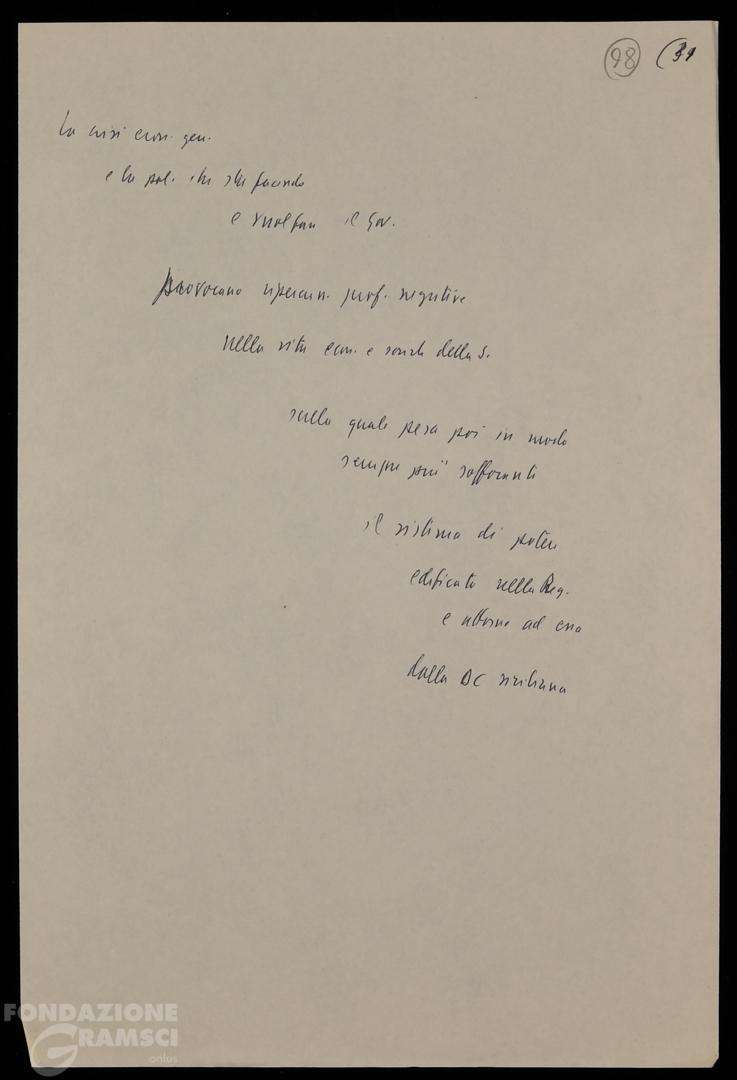 98 (31
La crisi econ. gen.
e la pol. che sta facendo
e vuol fare il Gov.
provocano ripercuss. prof. negative
nella vita econ. e sociale della S.
sulla quale pesa poi in modo
sempre più soffocante
il sistema di potere
edificato nella Reg.
e attorno ad essa
dalla DC siciliana
FONDAZIONE
GRAMSCI
onlus